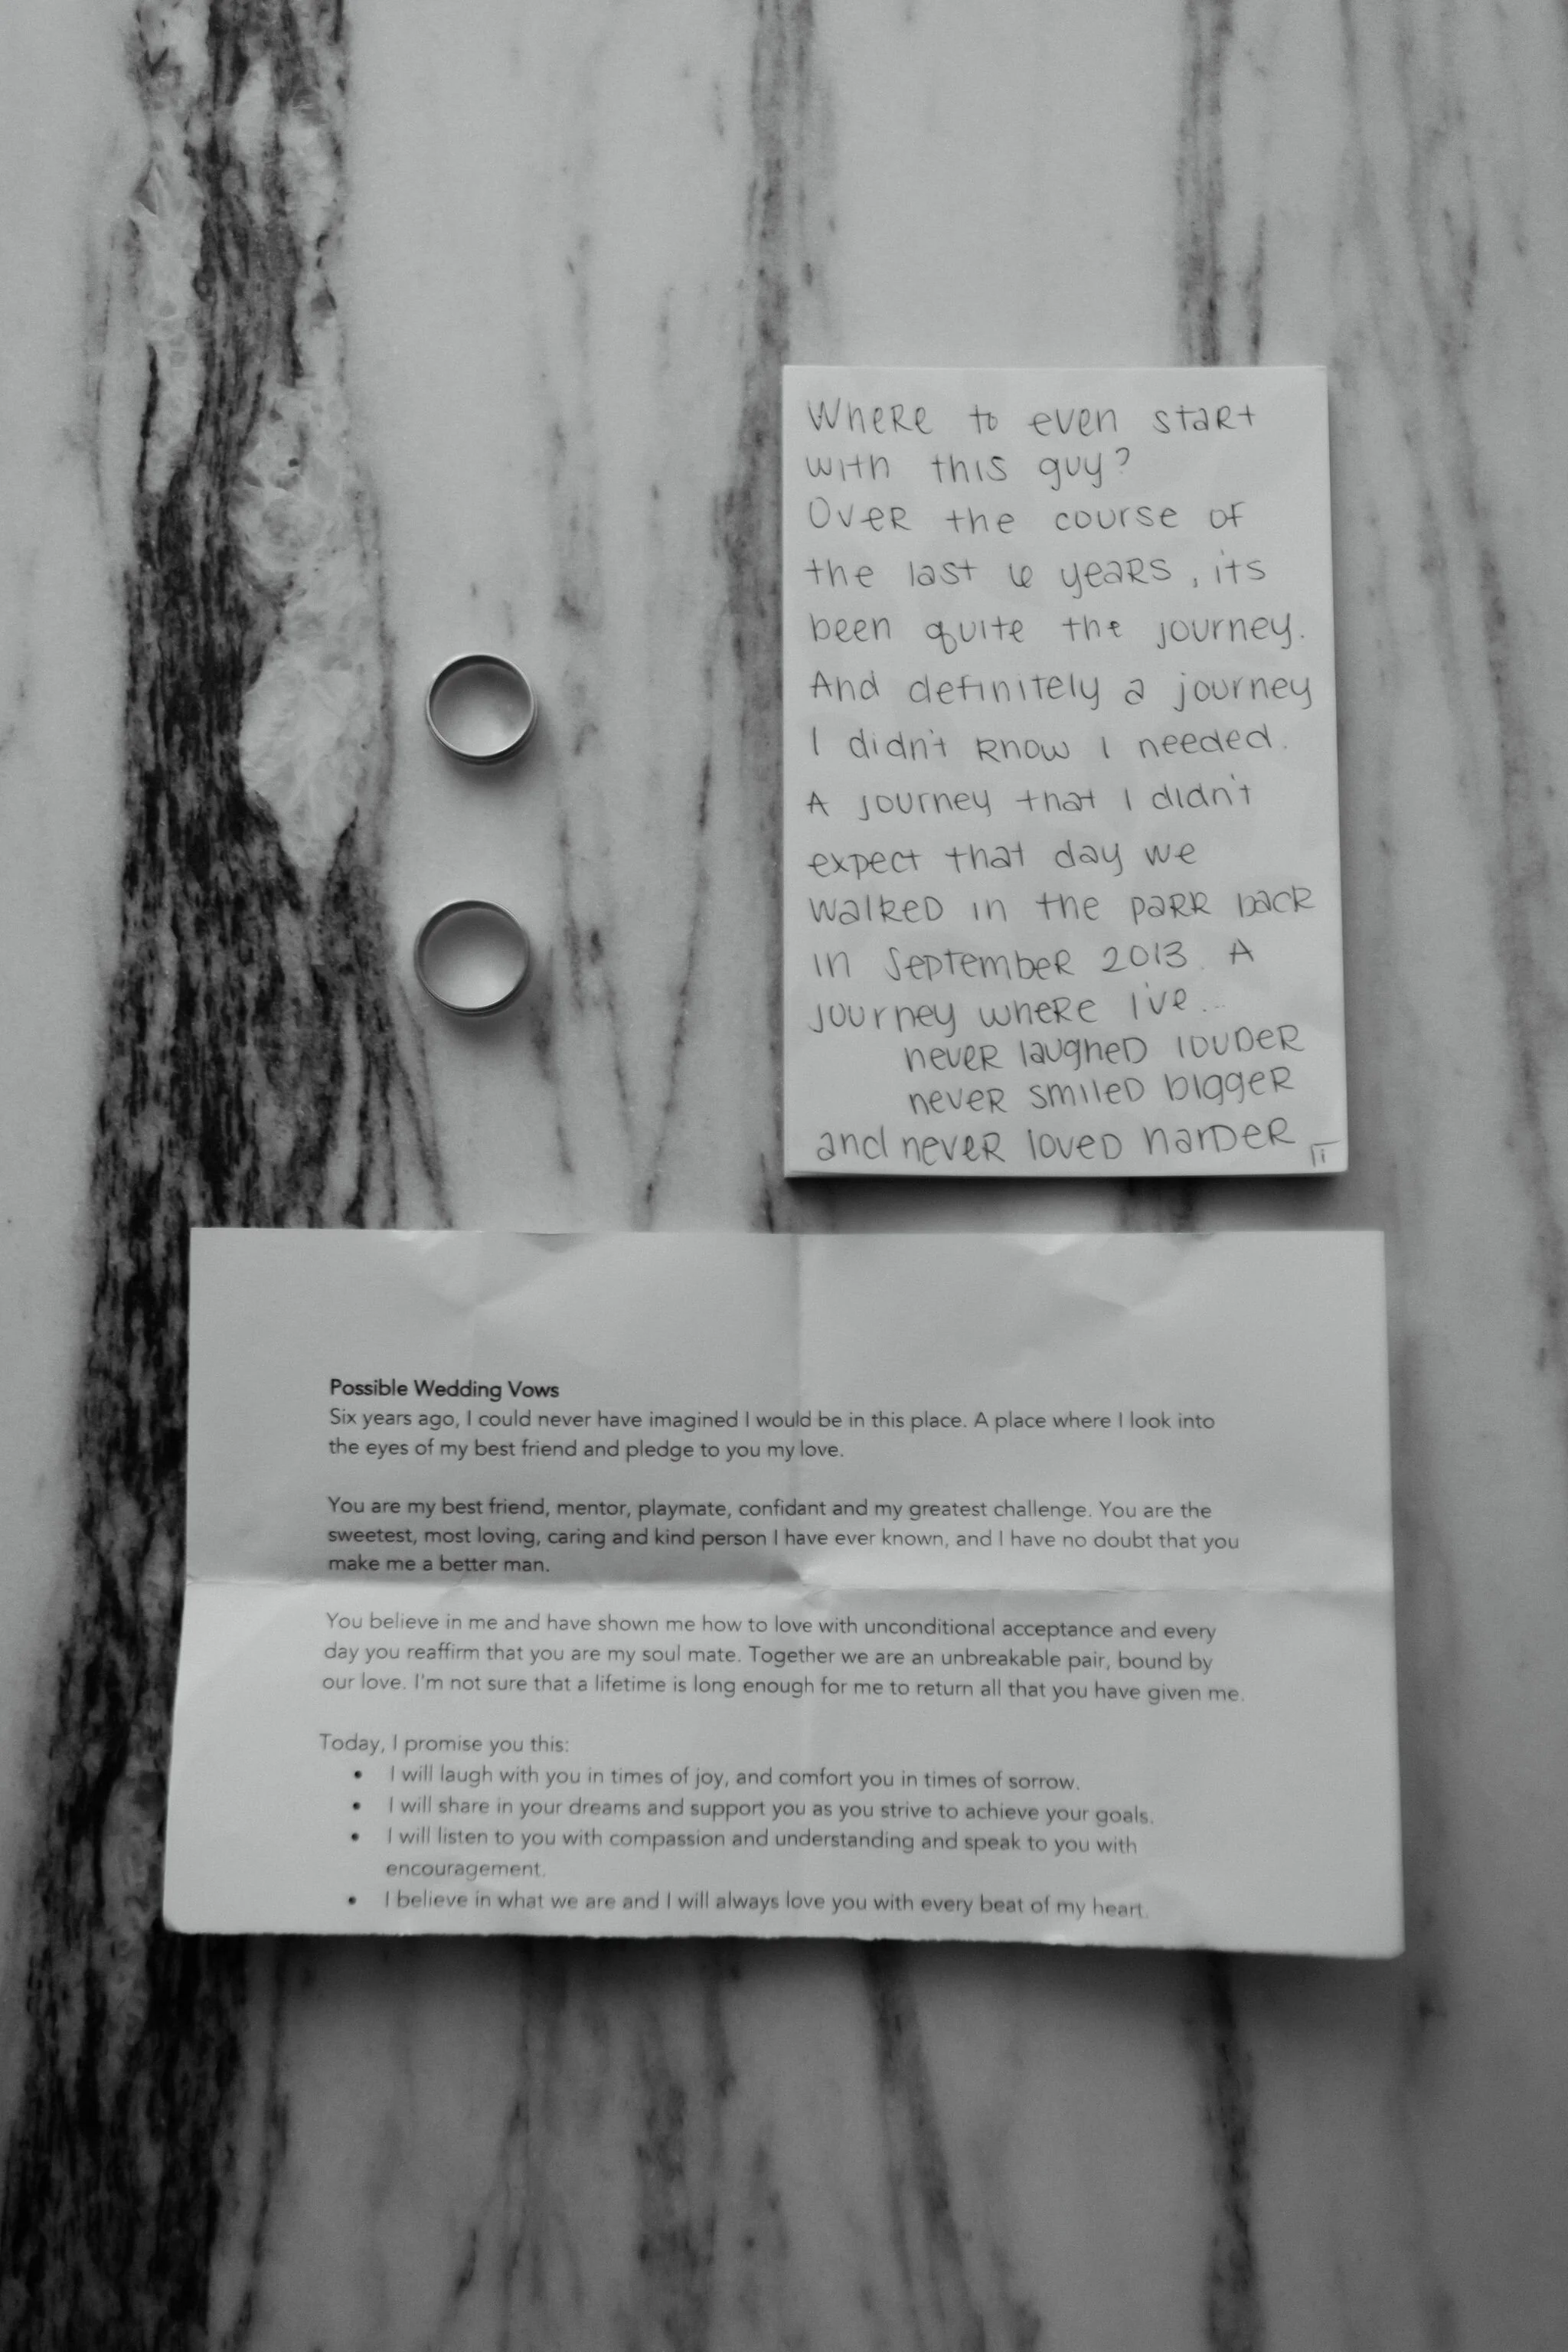 Where to even start
with this guy?
Over the course of
the last 6 years, its
been quite the journey.
And definitely a journey
I didn't know I needed.
A journey that I didn't
expect that day we
walked in the park back
in September 2013. A
journey where I've...
never laughed louder
never smiled bigger
and never loved harder
Possible Wedding Vows
Six years ago, I could never have imagined I would be in this place. A place where I look into
the eyes of my best friend and pledge to you my love.
You are my best friend, mentor, playmate, confidant and my greatest challenge. You are the
sweetest, most loving, caring and kind person I have ever known, and I have no doubt that you
make me a better man.
You believe in me and have shown me how to love with unconditional acceptance and every
day you reaffirm that you are my soul mate. Together we are an unbreakable pair, bound by
our love. I'm not sure that a lifetime is long enough for me to return all that you have given me.
Today, I promise you this:
• I will laugh with you in times of joy, and comfort you in times of sorrow.
• I will share in your dreams and support you as you strive to achieve your goals.
• I will listen to you with compassion and understanding and speak to you with
encouragement.
• I believe in what we are and I will always love you with every beat of my heart.